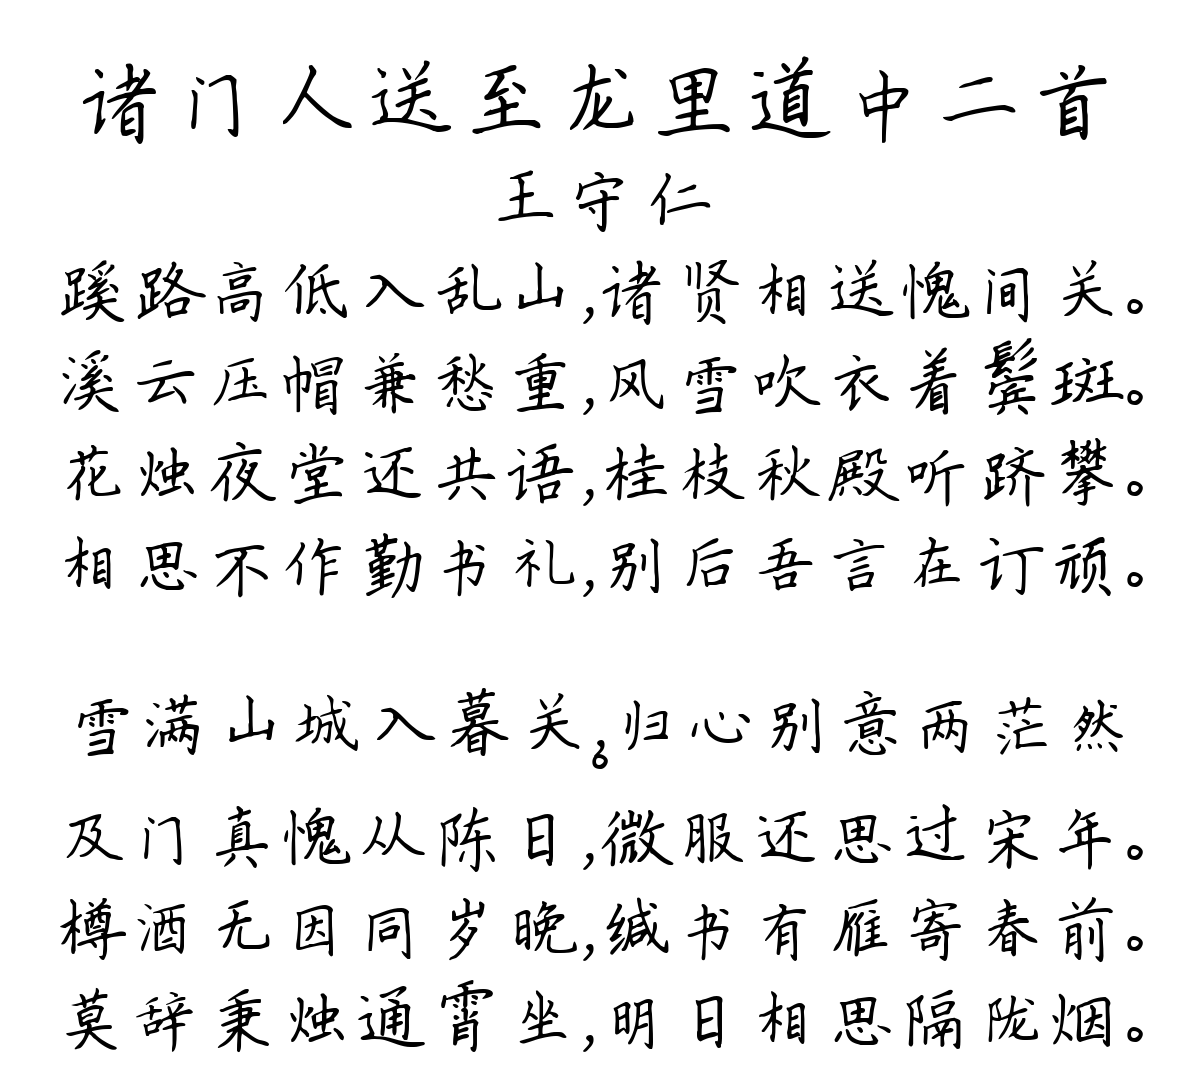 诸门人送至龙里道中二首
王守仁
蹊路高低入乱山,诸贤相送愧间关。
溪云压帽兼愁重,风雪吹衣着鬓斑。
花烛夜堂还共语,桂枝秋殿听跻攀。
相思不作勤书礼,别后吾言在订顽。
雪满山城入暮关。归心别意两茫然
及门真愧从陈日,微服还思过宋年。
樽酒无因同岁晚,缄书有雁寄春前。
莫辞秉烛通霄坐,明日相思隔陇烟。